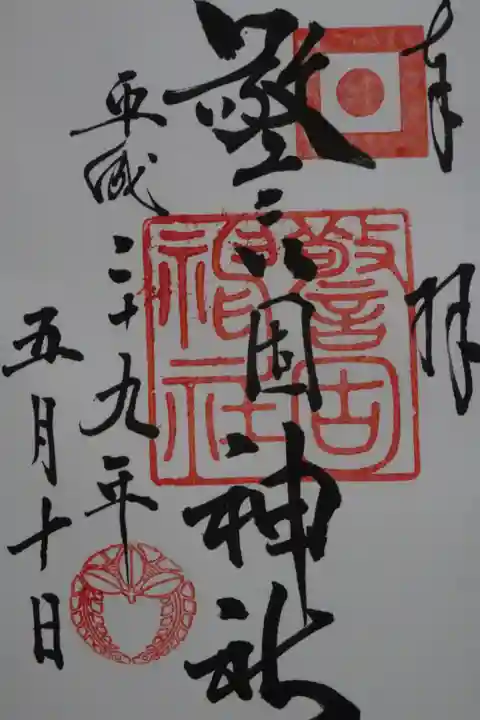 奉拝
警固神社
平成二十九年
五月十日
警固
神社